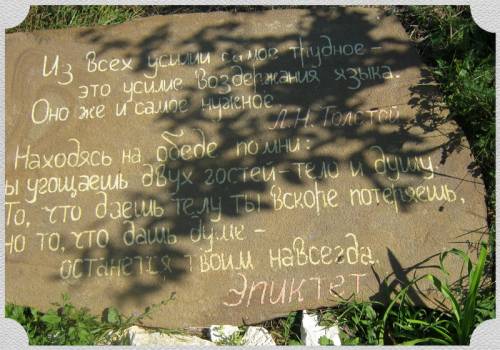 Из всех усилий самое трудное –
это усилие воздержания языка.
Оно же и самое нужное
Л.Н. Толстой
Находясь на обеде помни:
ы угощаешь двух гостей – тело и душу
То, что даешь телу ты вскоре потеряешь,
но то, что дашь душе –
останется твоим навсегда.
Эпиктет